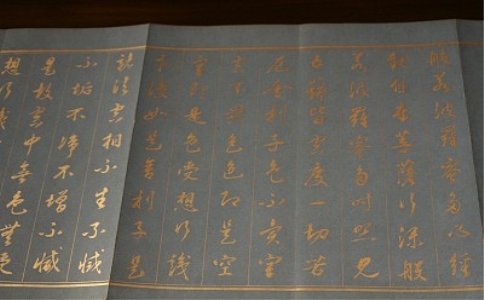 般若波羅蜜多心經
觀自在菩薩行深般
若波羅蜜多時照見
五蘊皆空度一切苦
厄舍利子色不異空
空不異色色即是空
空即是色受想行識
亦復如是舍利子是
諸法空相不生不滅
不垢不淨不增不減
是故空中無色無受
想行